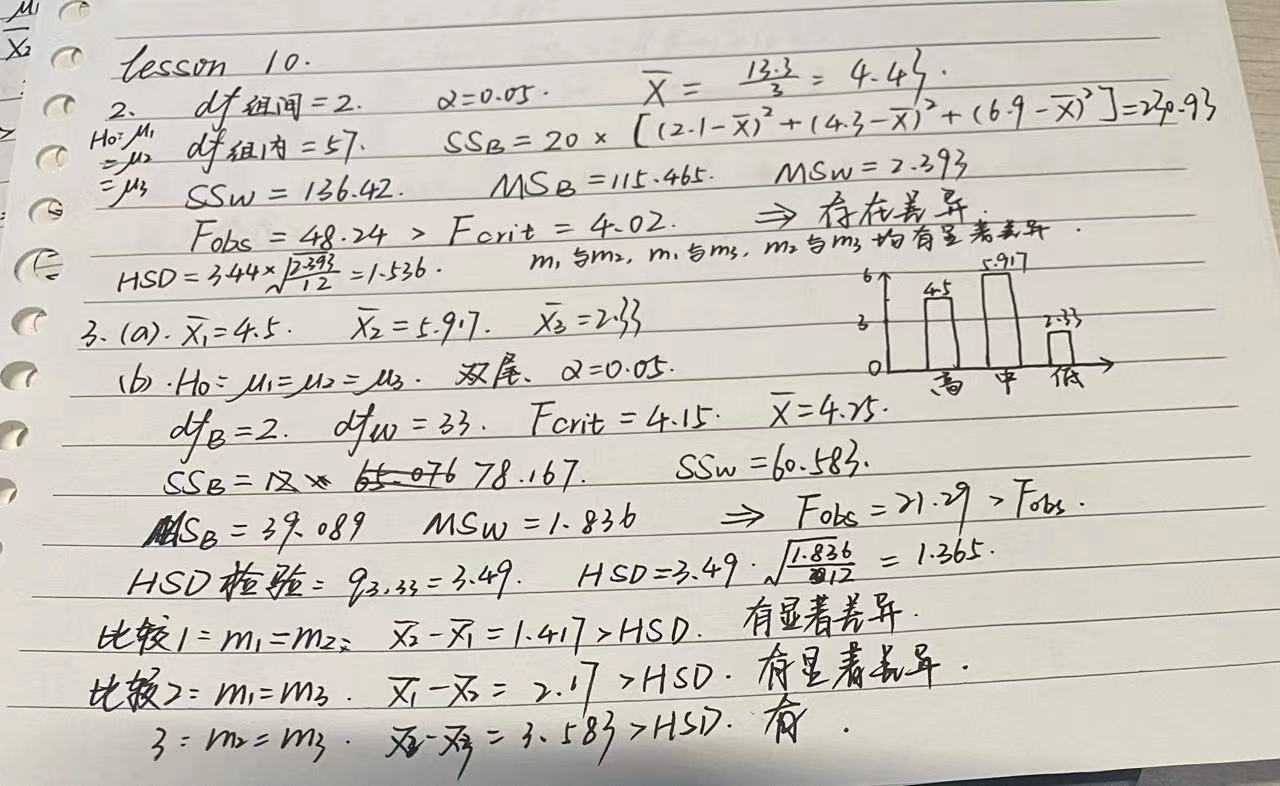 μ₁
X̄₂
lesson 10.
2. df组间=2. α=0.05. X̄ = 13.3/3 = 4.43.
H₀: μ₁ = μ₂ = μ₃
df组内=57. SSB = 20 × [(2.1-X̄)²+(4.3-X̄)²+(6.9-X̄)²]=230.93
SSW = 136.42. MSB=115.465. MSW=2.393
Fobs = 48.24 > Fcrit = 4.02. ⇒ 存在差异.
HSD = 3.44×√(2.393/12) = 1.536. m₁与m₂, m₁与m₃, m₂与m₃均有显著差异.
3. (a). X̄₁=4.5. X̄₂=5.917. X̄₃=2.33
6 3 0 4.5 5.917 2.33
高 中 低
(b). H₀: μ₁=μ₂=μ₃. 双尾、α=0.05.
dfB=2. dfW=33. Fcrit=4.15. X̄=4.25.
SSB = 12 × 65.076 78.167. SSW=60.583.
MSB=39.089 MSW=1.836 ⇒ Fobs=21.29 > Fobs.
HSD检验: q3,33=3.49. HSD=3.49·√(1.836/12) = 1.365.
比较1: m₁=m₂: X̄₂-X̄₁=1.417>HSD. 有显著差异.
比较2: m₁=m₃. X̄₁-X̄₃=2.17>HSD. 有显著差异.
3: m₂=m₃. X̄₂-X̄₃=3.583>HSD. 有.